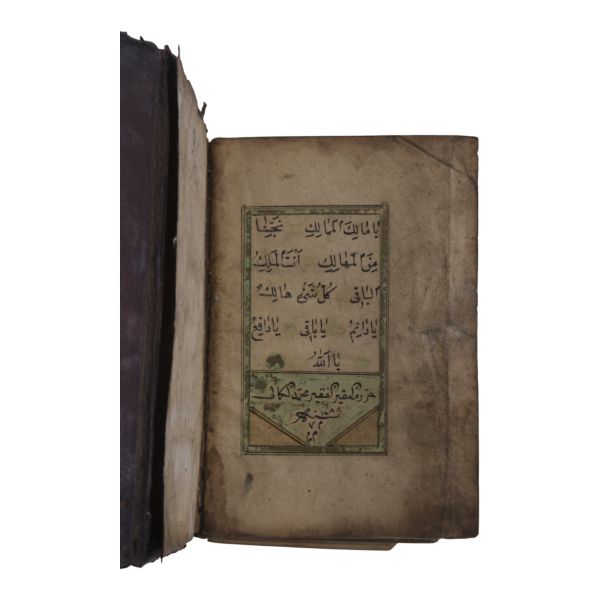 يا مالِكَ الْمَمالِكِ نَجِّنا
مِنَ الْمَهالِكِ أَنْتَ الْمَلِكُ
الْباقي كُلُّ شَيْءٍ هالِكٌ
يا دائِمُ يا باقي يا دافِعُ
يا اَللّٰهُ
حرره الحقير الفقير محمد